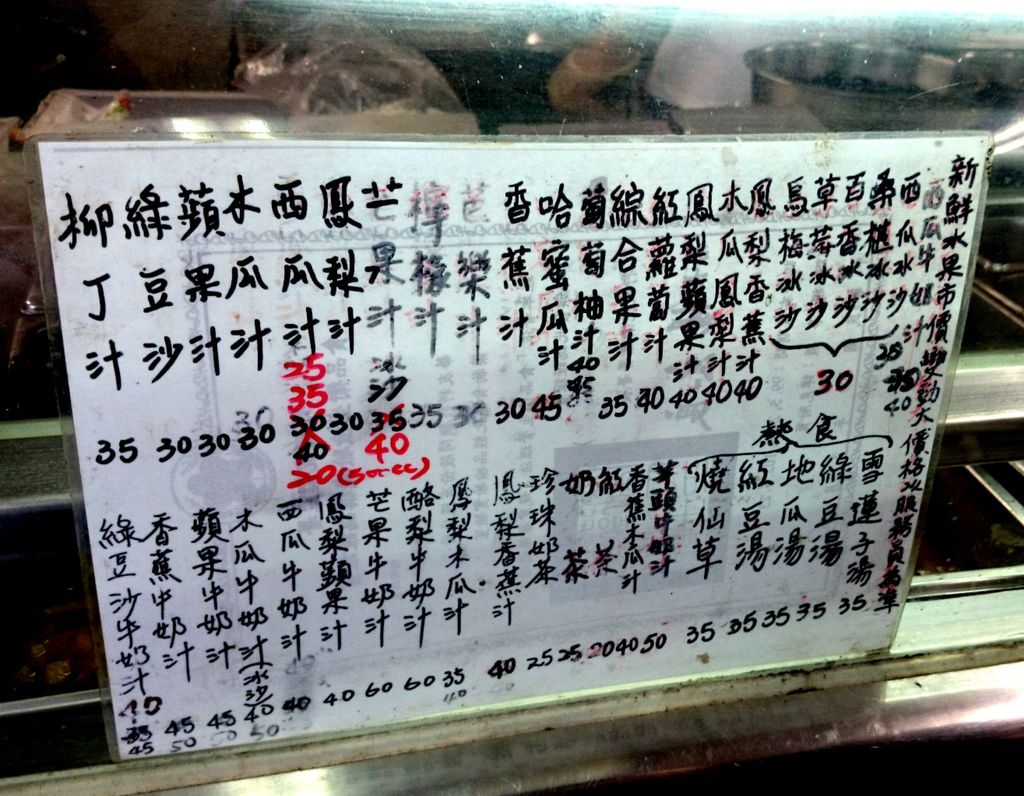 新鮮水果市價變動大價格以服務員為準
西瓜牛奶汁 40
西瓜冰沙
桑椹冰沙
百香冰沙
草莓冰沙
烏梅冰沙
30
鳳梨香蕉汁 40
木瓜鳳梨汁 40
鳳梨蘋果汁 40
紅蘿蔔汁 40
綜合果汁 35
葡萄柚汁 40
哈蜜瓜汁 45
香蕉汁 30
芭樂汁 30
檸梅汁 35
芒果汁 冰沙 35 40
鳳梨汁 30
西瓜汁 25 35 30 40 20(500cc)
木瓜汁 30
蘋果汁 30
綠豆沙 30
柳丁汁 35
熱食
雪蓮子湯 35
綠豆湯 35
地瓜湯 35
紅豆湯 35
燒仙草 35
芋頭牛奶汁 50
香蕉木瓜汁 40
紅茶 20
奶茶 25
珍珠奶茶 25
鳳梨香蕉汁 40
鳳梨木瓜汁 35 40
酪梨牛奶汁 60
芒果牛奶汁 60
鳳梨蘋果汁 40
西瓜牛奶汁 40
木瓜牛奶汁(冰沙) 40 50
蘋果牛奶汁 45 50
香蕉牛奶汁 45 50
綠豆沙牛奶汁 40 35 45